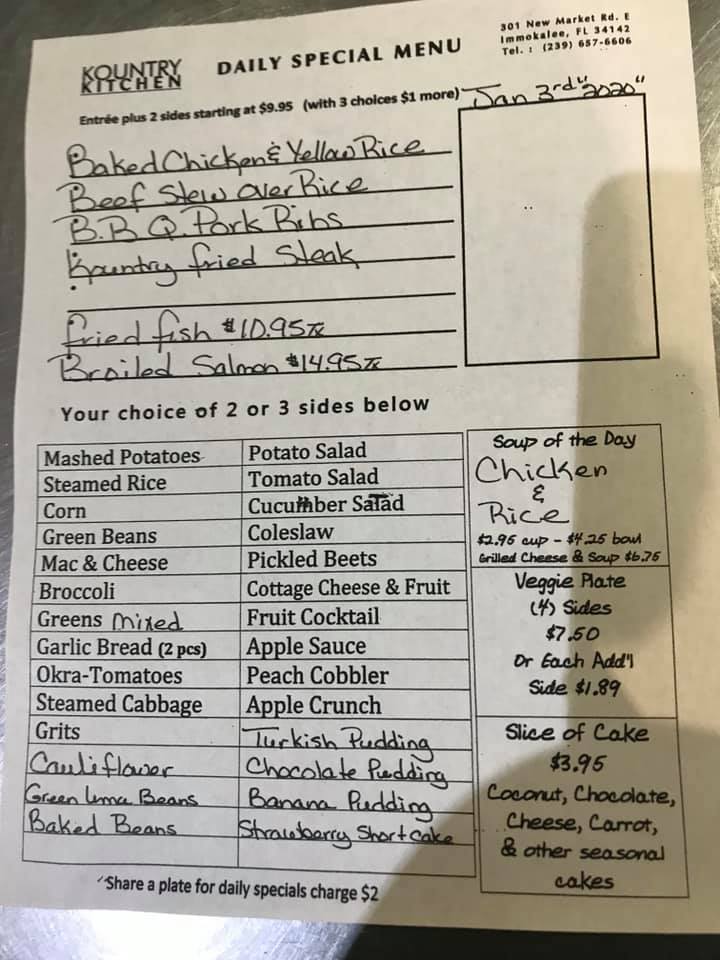 KOUNTRY
KITCHEN
DAILY SPECIAL MENU
301 New Market Rd. E
Immokalee, FL 34142
Tel. : (239) 657-6606
Entrée plus 2 sides starting at $9.95 (with 3 choices $1 more)
Jan 3rd "2020"
Baked Chicken & Yellow Rice
Beef Stew over Rice
B.B Q. Pork Ribs
Kountry fried Steak
fried fish $10.95
Broiled Salmon $14.95
Your choice of 2 or 3 sides below
Mashed Potatoes
Steamed Rice
Corn
Green Beans
Mac & Cheese
Broccoli
Greens Mixed
Garlic Bread (2 pcs)
Okra-Tomatoes
Steamed Cabbage
Grits
Cauliflower
Green Lima Beans
Baked Beans
Potato Salad
Tomato Salad
Cucumber Salad
Coleslaw
Pickled Beets
Cottage Cheese & Fruit
Fruit Cocktail
Apple Sauce
Peach Cobbler
Apple Crunch
Turkish Pudding
Chocolate Pudding
Banana Pudding
Strawberry Short Cake
Soup of the Day
Chicken
&
Rice
$2.95 cup - $4.25 bowl
Grilled Cheese & Soup $6.75
Veggie Plate
(4) Sides
$7.50
Or Each Add'l
Side $1.89
Slice of Cake
$3.95
Coconut, Chocolate,
Cheese, Carrot,
& other seasonal
cakes
Share a plate for daily specials charge $2